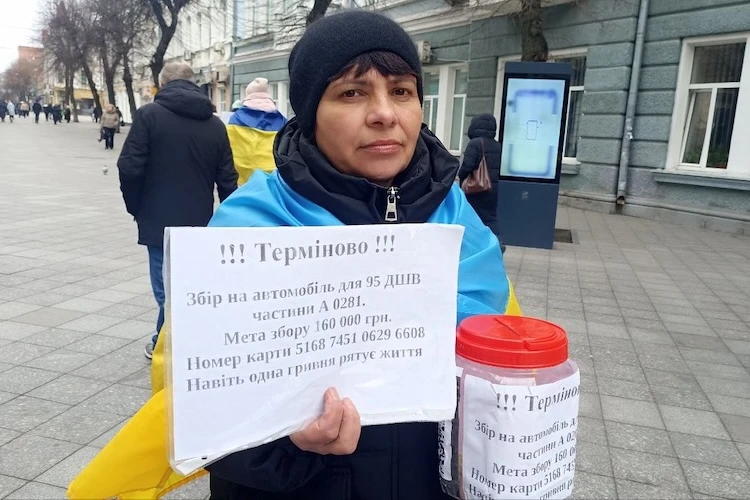 !!! Терміново !!!
Збір на автомобіль для 95 ДШВ
частини А 0281.
Мета збору 160 000 грн.
Номер карти 5168 7451 0629 6608
Навіть одна гривня рятує життя
!!! Терміново
Збір на автомобіль д
частини А 028
Мета збору 160
Номер карти 5168 745
Навіть одна гривня